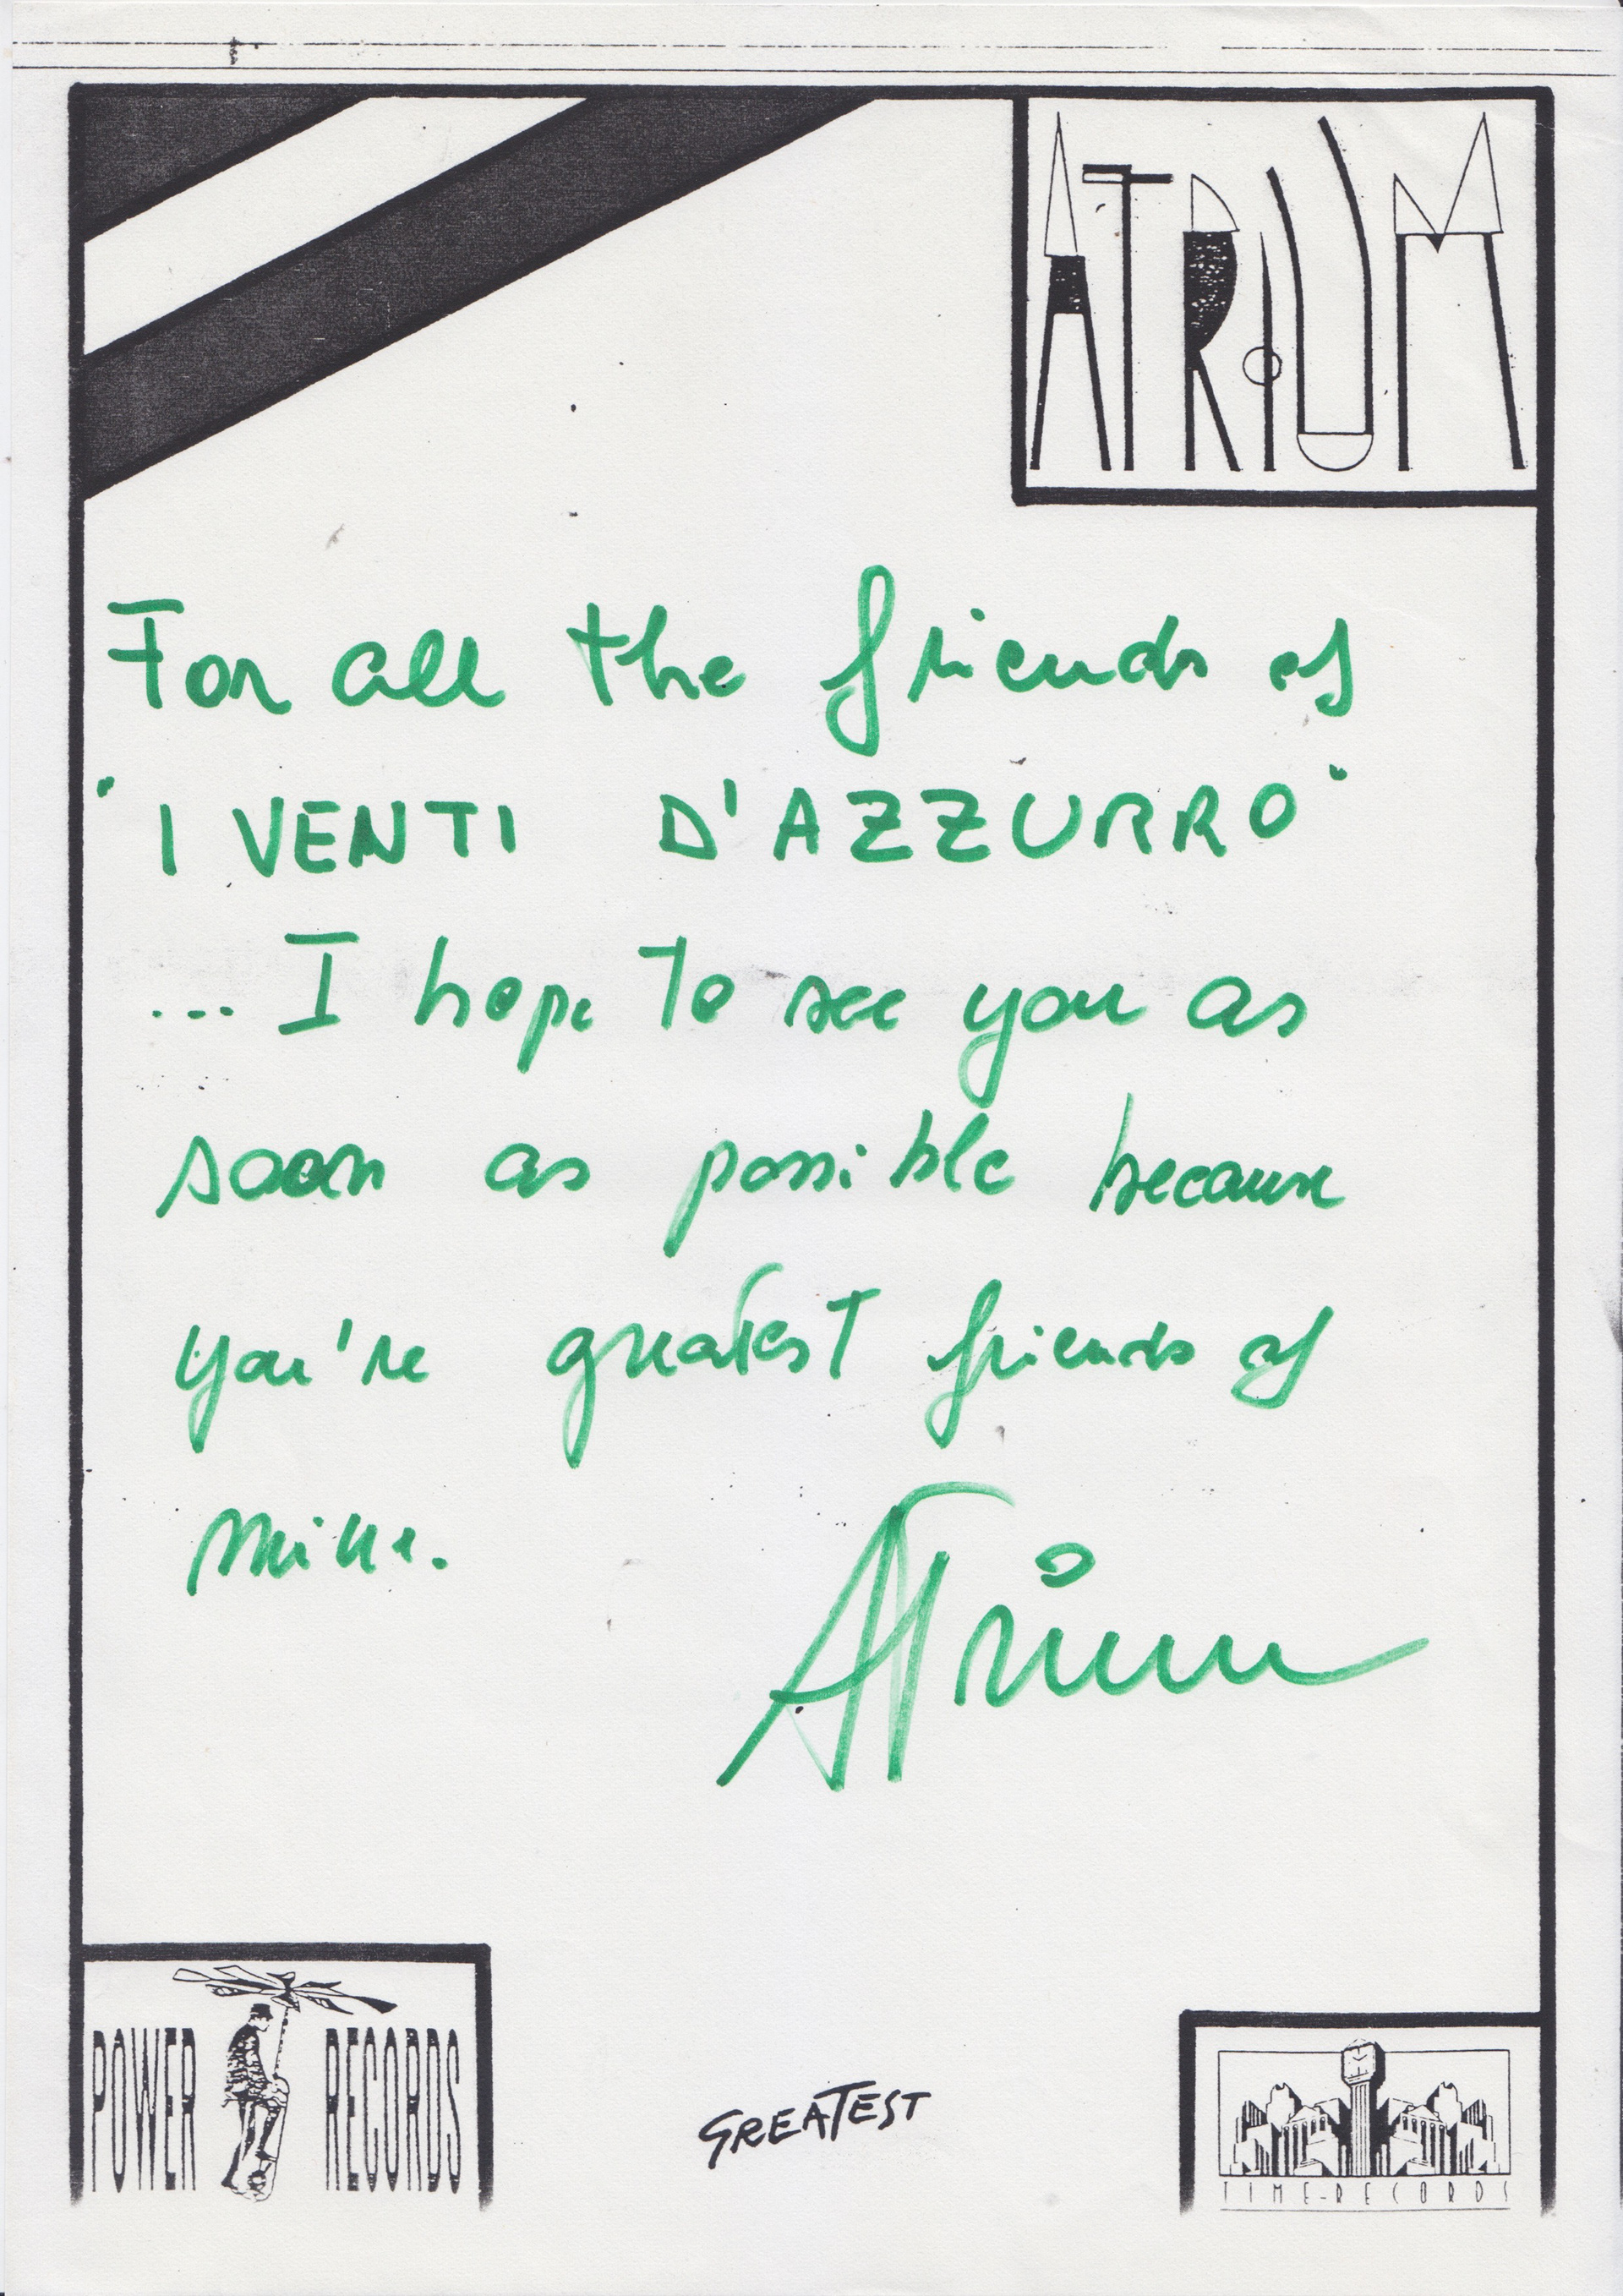 ATRIUM
For all the friends of
"I VENTI D'AZZURRO"
... I hope to see you as
soon as possible because
you're greatest friends of
mine.
Atrium
POWER RECORDS
GREATEST
TIME-RECORDS